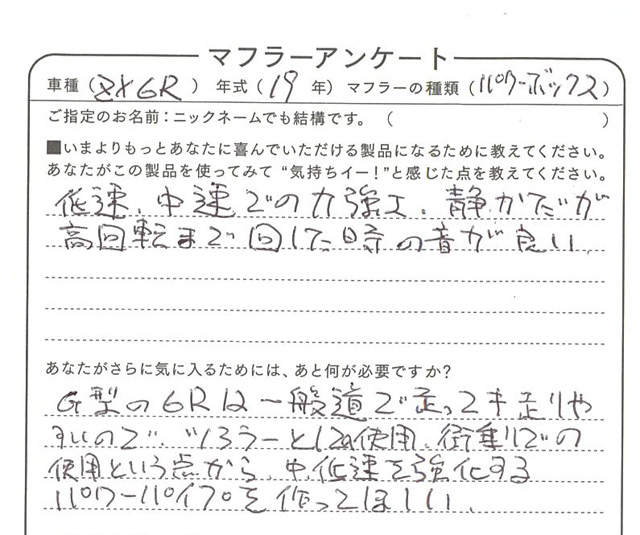 マフラーアンケート
車種(ZX6R) 年式(19年) マフラーの種類(パワーボックス)
ご指定のお名前:ニックネームでも結構です。( )
■いまよりもっとあなたに喜んでいただける製品になるために教えてください。
あなたがこの製品を使ってみて“気持ちイー!”と感じた点を教えてください。
低速、中速での力強さ、静かだが
高回転まで回した時の音が良い
あなたがさらに気に入るためには、あと何が必要ですか?
G型の6Rは一般道で走っても走りや
すいので、ツアラーとしての使用、街乗りでの
使用という点から、中低速を強化する
パワーパイプを作ってほしい、